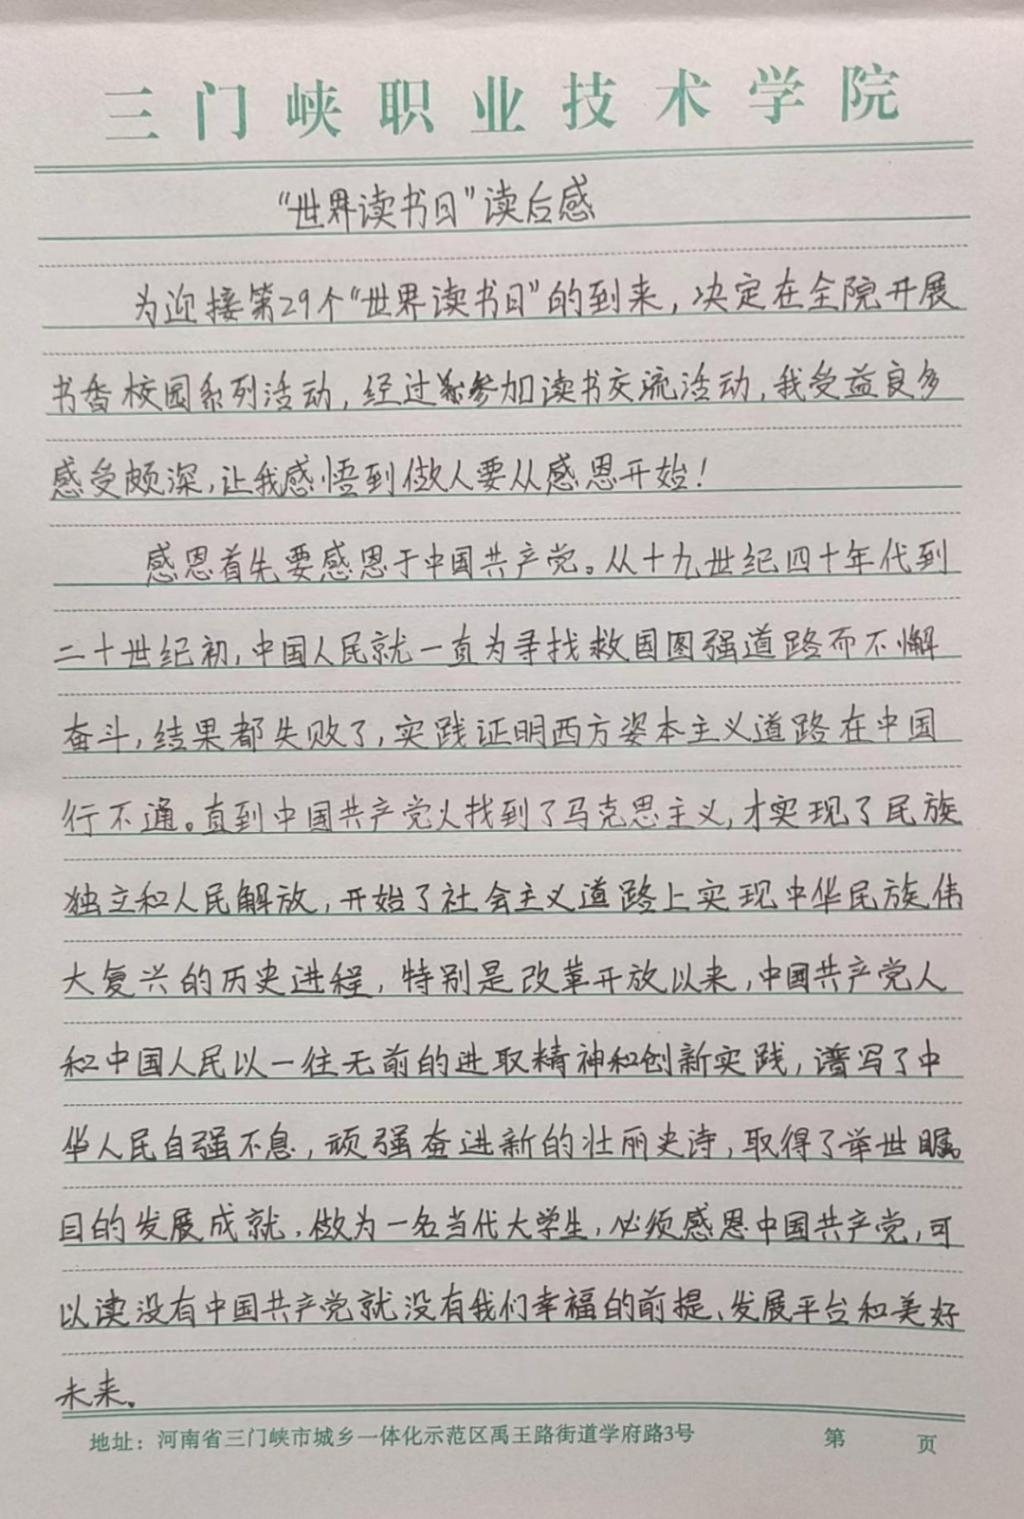 三门峡职业技术学院
“世界读书日”读后感
为迎接第29个“世界读书日”的到来，决定在全院开展
书香校园系列活动，经过参加读书交流活动，我受益良多
感受颇深，让我感悟到做人要从感恩开始！
感恩首先要感恩于中国共产党。从十九世纪四十年代到
二十世纪初，中国人民就一直为寻找救国图强道路而不懈
奋斗，结果都失败了，实践证明西方资本主义道路在中国
行不通。直到中国共产党人找到了马克思主义，才实现了民族
独立和人民解放，开始了社会主义道路上实现中华民族伟
大复兴的历史进程，特别是改革开放以来，中国共产党人
和中国人民以一往无前的进取精神和创新实践，谱写了中
华人民自强不息，顽强奋进新的壮丽史诗，取得了举世瞩
目的发展成就，做为一名当代大学生，必须感恩中国共产党，可
以读没有中国共产党就没有我们幸福的前提、发展平台和美好
未来。
地址：河南省三门峡市城乡一体化示范区禹王路街道学府路3号 第 页